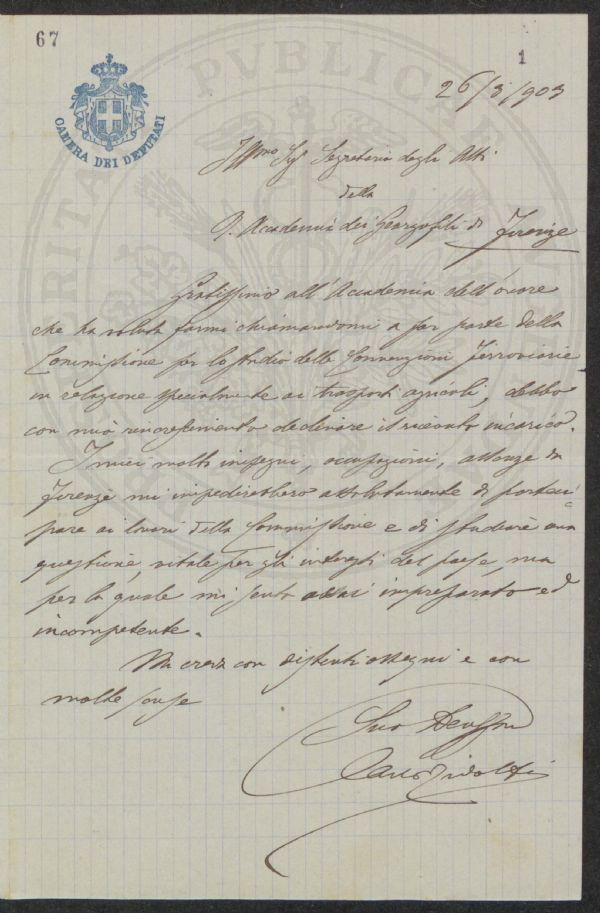 67
1
CAMERA DEI DEPUTATI
26/3/903
Ill.mo Sig. Segretario degli Atti
della
R. Accademia dei Georgofili di Firenze
Gratissimo all'Accademia dell'onore
che ha voluto farmi chiamandomi a far parte della
Commissione per lo studio delle Convenzioni Ferroviarie
in relazione specialmente ai trasporti agricoli, debbo
con mio rincrescimento declinare il ricevuto incarico.
I miei molti impegni, occupazioni, assenze da
Firenze mi impedirebbero assolutamente di parteci=
pare ai lavori della Commissione e di studiare una
questione, vitale per gli interessi del paese, ma
per la quale mi sento assai impreparato ed
incompetente.
Mi creda con distinti ossequi e con
molte scuse
Suo
Carlo Ridolfi